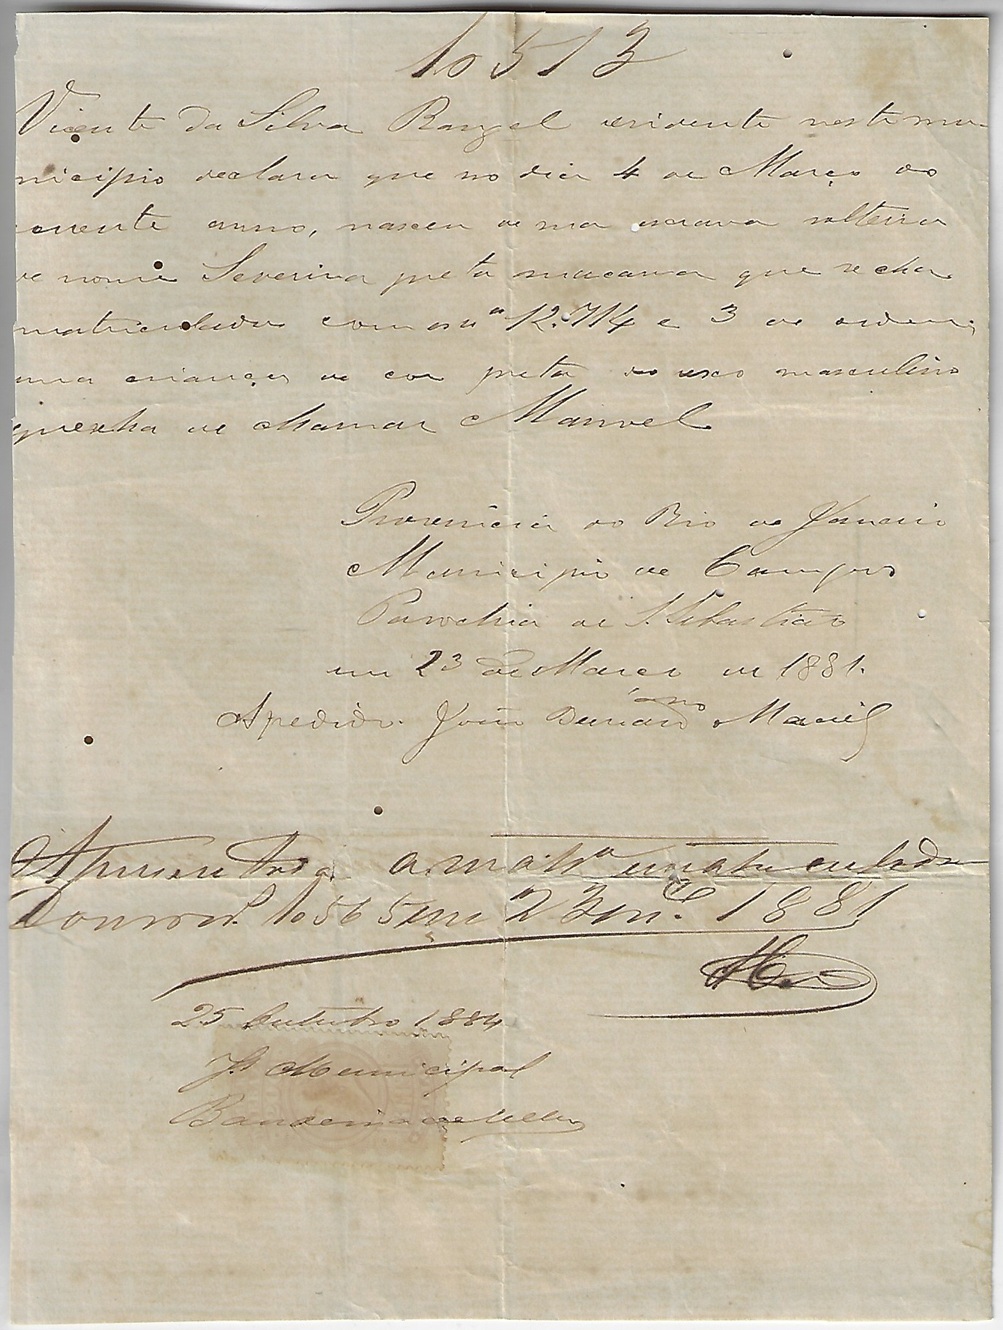 10513
Vicente da Silva Rangel residente neste mu-
nicipio declara que no dia 4 de Março do
corrente anno, nasceu de sua escrava solteira
de nome Severina preta macama que se cha
matriculada com os nº 12.714 e 3 de ordem,
uma criança de cor preta do sexo masculino
que se ha de chamar Manoel
Provincia do Rio de Janeiro
Municipio de Campos
Parochia de S. Sebastião
em 23 de Março de 1881.
Apedido. João Maciel
Apresentada a
10565 em 23 1881
25 Outubro 1884
J. Municipal
Bandeira de Mello